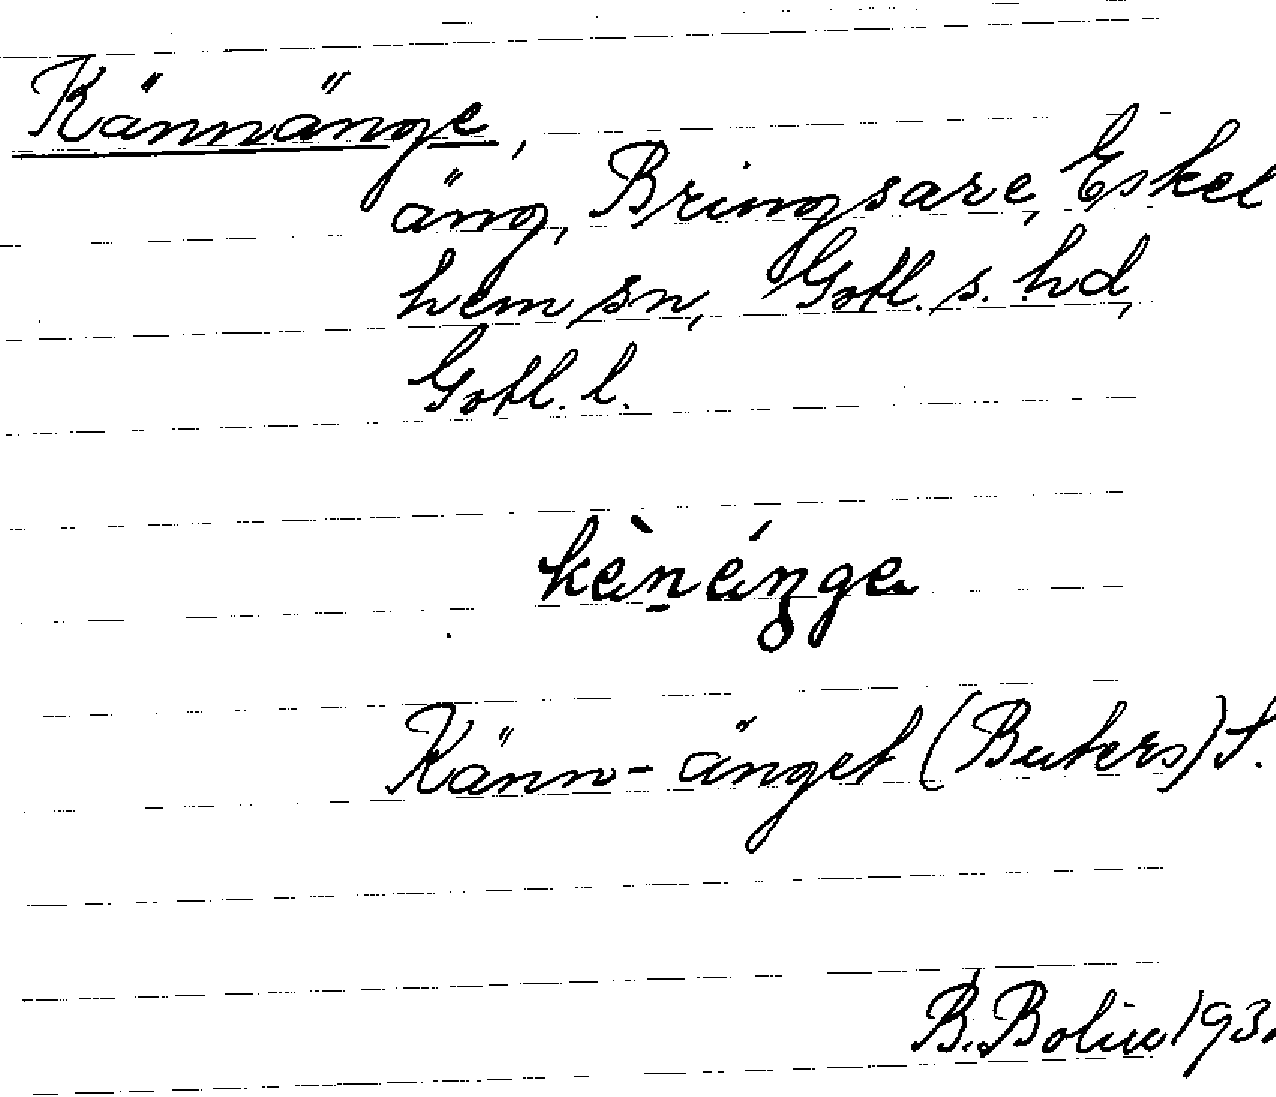 Kännänge,
äng, Bringsare, Eskel
hem sn, Gotl. s. hd,
Gotl. l.
kèṇénge
Känn-änget (Buters) S.
B. Bolin 193